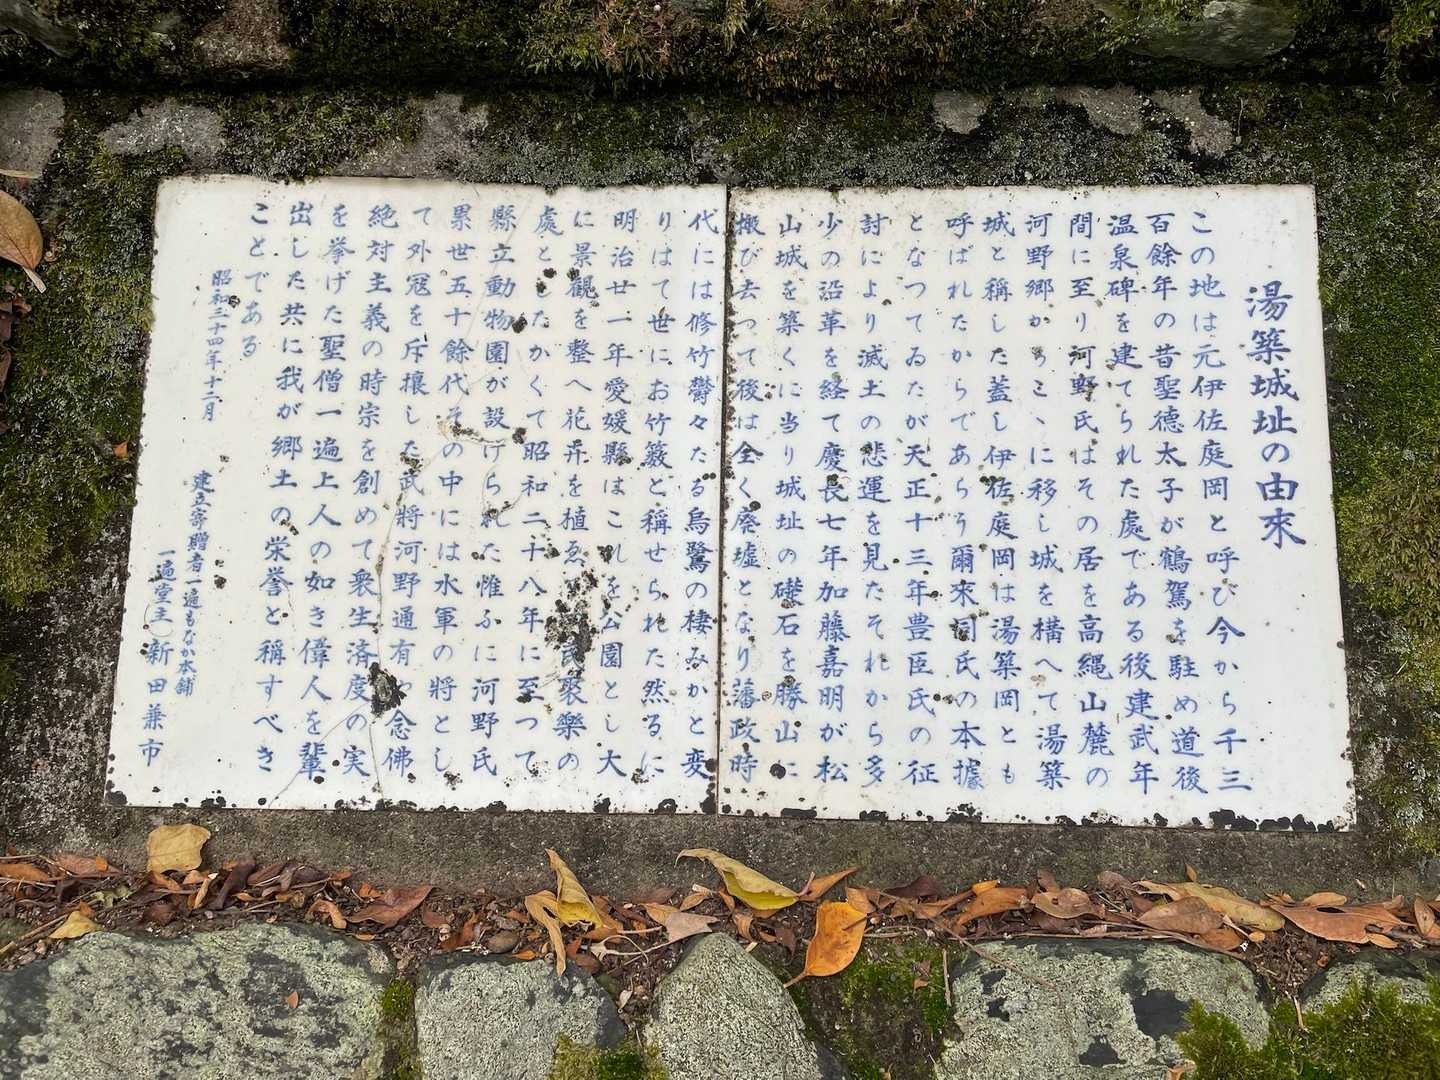 湯築城址の由來
この地は元伊佐庭岡と呼び今から千三
百餘年の昔聖德太子が鶴駕を駐め道後
温泉碑を建てられた處である後建武年
間に至り河野氏はその居を高縄山麓の
河野郷からこゝに移し城を構へて湯築
城と稱した蓋し伊佐庭岡は湯築岡とも
呼ばれたからであらう爾来同氏の本據
となつてゐたが天正十三年豊臣氏の征
討により滅土の悲運を見たそれから多
少の沿革を経て慶長七年加藤嘉明が松
山城を築くに当り城址の礎石を勝山に
搬び去つて後は全く廃墟となり藩政時
代には修竹鬱々たる烏鷺の棲みかと変
りはて世にお竹籔と稱せられた然るに
明治廿一年愛媛縣はこれを公園とし大
に景観を整へ花卉を植ゑ民聚樂の
處としたかくて昭和二十八年に至つて
縣立動物園が設けられた惟ふに河野氏
累世五十餘代その中には水軍の將とし
て外冦を斥攘した武將河野通有や念佛
絶対主義の時宗を創めて衆生済度の実
を挙げた聖僧一遍上人の如き偉人を輩
出した共に我が郷土の栄誉と稱すべき
ことである
昭和三十四年十二月
建立寄贈者一遍もなか本舗
一遍堂主)新田兼市